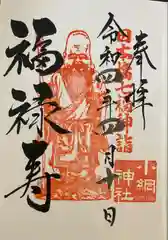 奉拝
日本橋七福神詣
令和四年四月十日
福禄寿
小網
神社